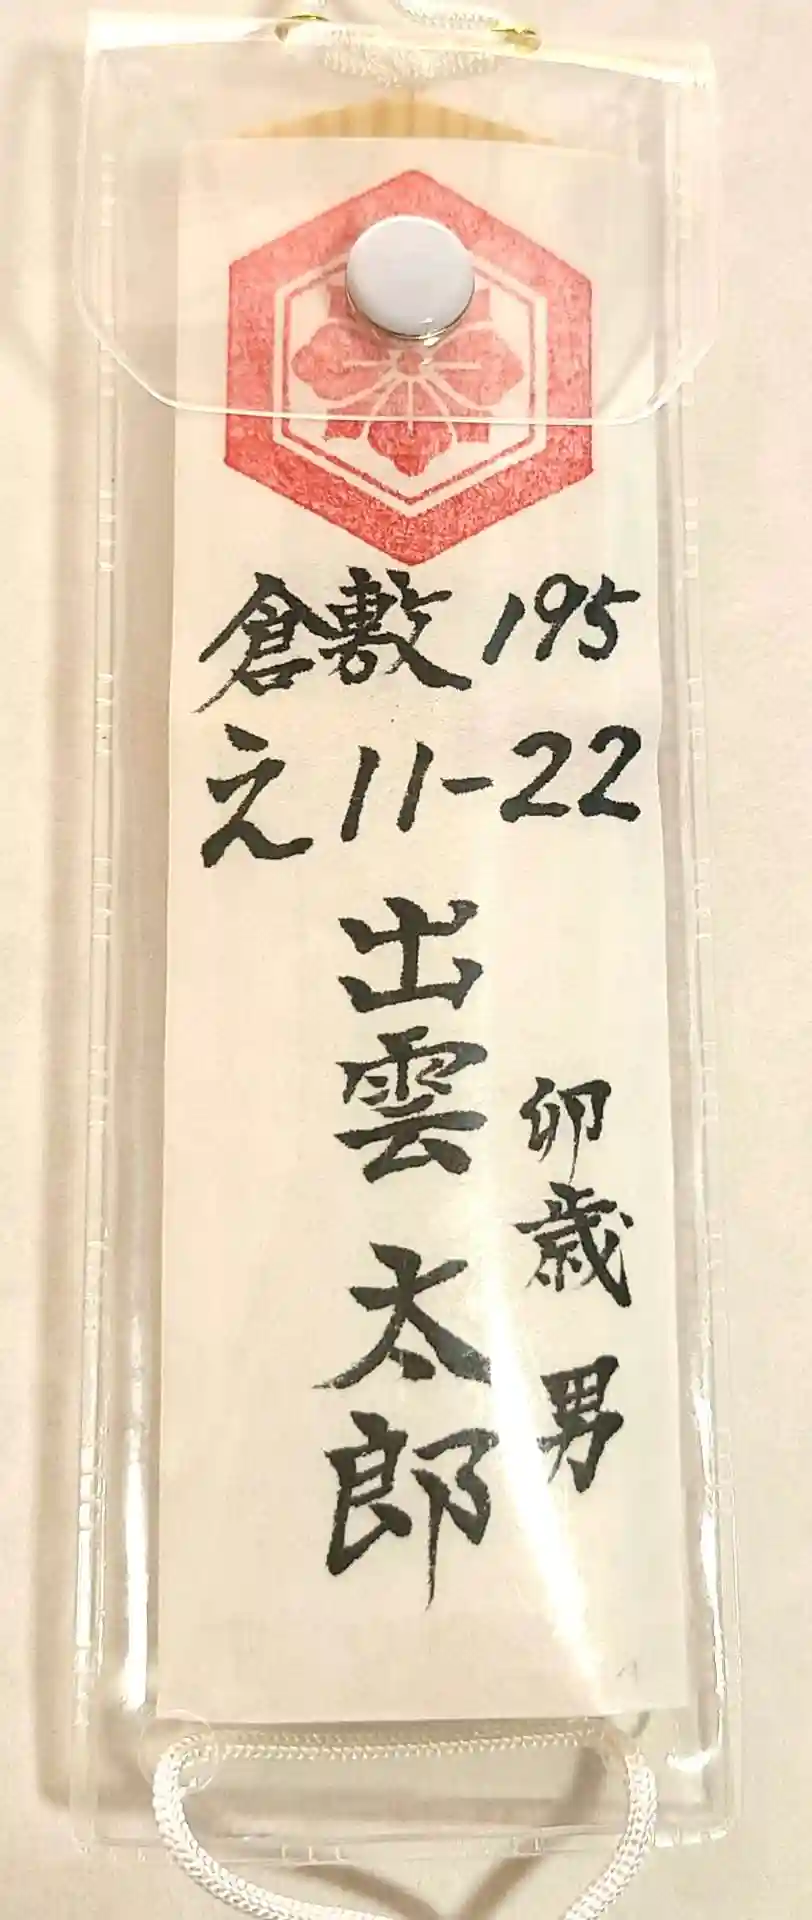 倉敷 195
え 11-22
卯歳 男
出雲 太郎